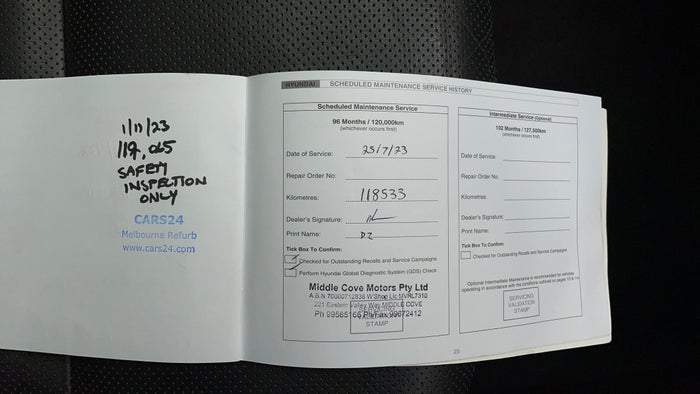 1/11/23
119,065
SAFETY
INSPECTION
ONLY
CARS24
Melbourne Refurb
www.cars24.com
HYUNDAI SCHEDULED MAINTENANCE SERVICE HISTORY
Scheduled Maintenance Service
96 Months / 120,000km
(whichever occurs first)
Date of Service: 25/7/23
Repair Order No:
Kilometres: 118533
Dealer's Signature:
Print Name: DZ
Tick Box To Confirm:
Checked for Outstanding Recalls and Service Campaigns
Perform Hyundai Global Diagnostic System (GDS) Check
Middle Cove Motors Pty Ltd
A.B.N 70000712838 W/Shop Lic MVRL7310
221 Eastern Valley Way MIDDLE COVE
Ph 99585166 Ph/Fax 99672412
SERVICING
VALIDATION
STAMP
Intermediate Service (Optional)
102 Months / 127,500km
(whichever occurs first)
Date of Service:
Repair Order No:
Kilometres:
Dealer's Signature:
Print Name:
Tick Box To Confirm:
Checked for Outstanding Recalls and Service Campaigns
Optional Intermediate Maintenance is recommended for vehicles
operating in accordance with the conditions outlined on pages 13 & 14
SERVICING
VALIDATION
STAMP
25